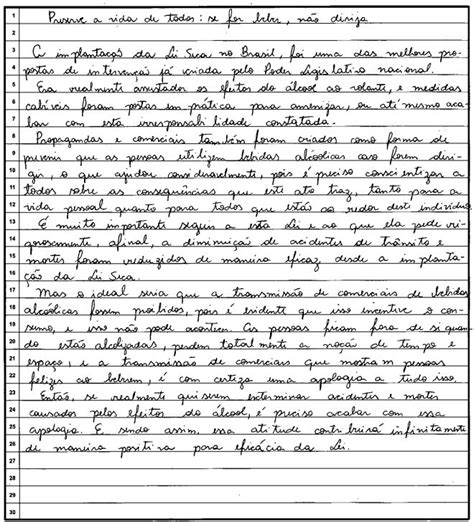 1 Preserve a vida de todos: se for beber, não dirija
2
3 A implantação da Lei Seca no Brasil, foi uma das melhores pro-
4 postas de intervenção já criada pelo Poder Legislativo nacional.
5 Era realmente assustador os efeitos do álcool ao volante, e medidas
6 cabíveis foram postas em prática para amenizar, ou até mesmo aca-
7 bar com esta irresponsabilidade constatada.
8 Propagandas e comerciais também foram criados como forma de
9 prevenir que as pessoas utilizem bebidas alcóolicas caso forem diri-
10 gir, o que ajudou consideravelmente, pois é preciso conscientizar a
11 todos sobre as consequências que este ato traz, tanto para a
12 vida pessoal quanto para todos que estão ao redor deste indivíduo.
13 É muito importante seguir a esta Lei e ao que ela pede vi-
14 gorosamente, afinal, a diminuição de acidentes de trânsito e
15 mortes foram reduzidos de maneira eficaz desde a implanta-
16 ção da Lei Seca.
17 Mas o ideal seria que a transmissão de comerciais de bebidas
18 alcóolicas fossem proibidos, pois é evidente que isso incentive o con-
19 sumo, e isso não pode acontecer. As pessoas ficam fora de si quan-
20 do estão alcolizadas, perdem totalmente a noção de tempo e
21 espaço, e a transmissão de comerciais que mostram pessoas
22 felizes ao beberem, é com certeza uma apologia a tudo isso.
23 Então, se realmente quiserem exterminar acidentes e mortes
24 causados pelos efeitos do álcool, é preciso acabar com essa
25 apologia. E sendo assim, essa atitude contribuirá infinitamente
26 de maneira positiva para eficácia da Lei.
27
28
29
30